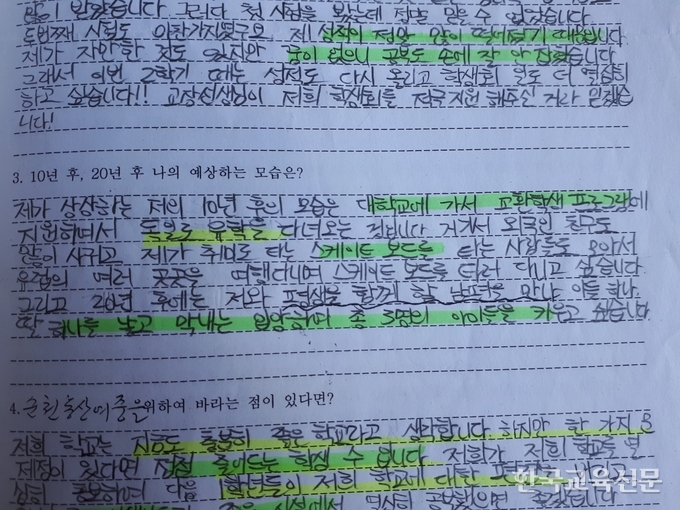 많이 반성했습니다. 그러다 첫 시험을 봤는데 정말 믿을 수 없었습니다
두번째 시험도 마찬가지였구요 제 성적이 정말 많이 떨어졌기 때문입니다
제가 자만한 것도 있지만 꿈이 없으니 공부도 손에 잘 안 잡혔습니다
그래서 이번 2학기 때는 성적도 다시 올리고 학생회 일도 더 열심히
하고 싶습니다!! 교장선생님이 저희 학생회를 적극 지원 해주실 거라 믿겠습
니다!
3. 10년 후, 20년 후 나의 예상하는 모습은?
제가 상상하는 저의 10년 후의 모습은 대학교에 가서 교환학생 프로그램에
지원하면서 독일로 유학을 다녀오는 것입니다. 거기서 외국인 친구도
많이 사귀고 제가 취미로 타는 스케이트 보드를 타는 사람들도 모아서
유럽의 여러 곳곳을 여행다니며 스케이트 보드를 타러 다니고 싶습니다.
그리고 20년 후에는 저와 평생을 함께 할 남편을 만나 아들 하나,
딸 하나를 낳고 막내는 입양하여 총 3명의 아이들을 키우고 싶습니다
4. 순천동산여중을 위하여 바라는 점이 있다면?
저희 학교는 지금도 충분히 좋은 학교라고 생각합니다. 하지만 한 가지 문
제점이 있다면 점점 줄어드는 학생 수 입니다. 저희가 저희 학교를 열
심히 홍보하여 다음 1학년들이 저희 학교에 대한
한국교육신문
좋은 시설에서 열심히 공부했으면 좋겠습니다